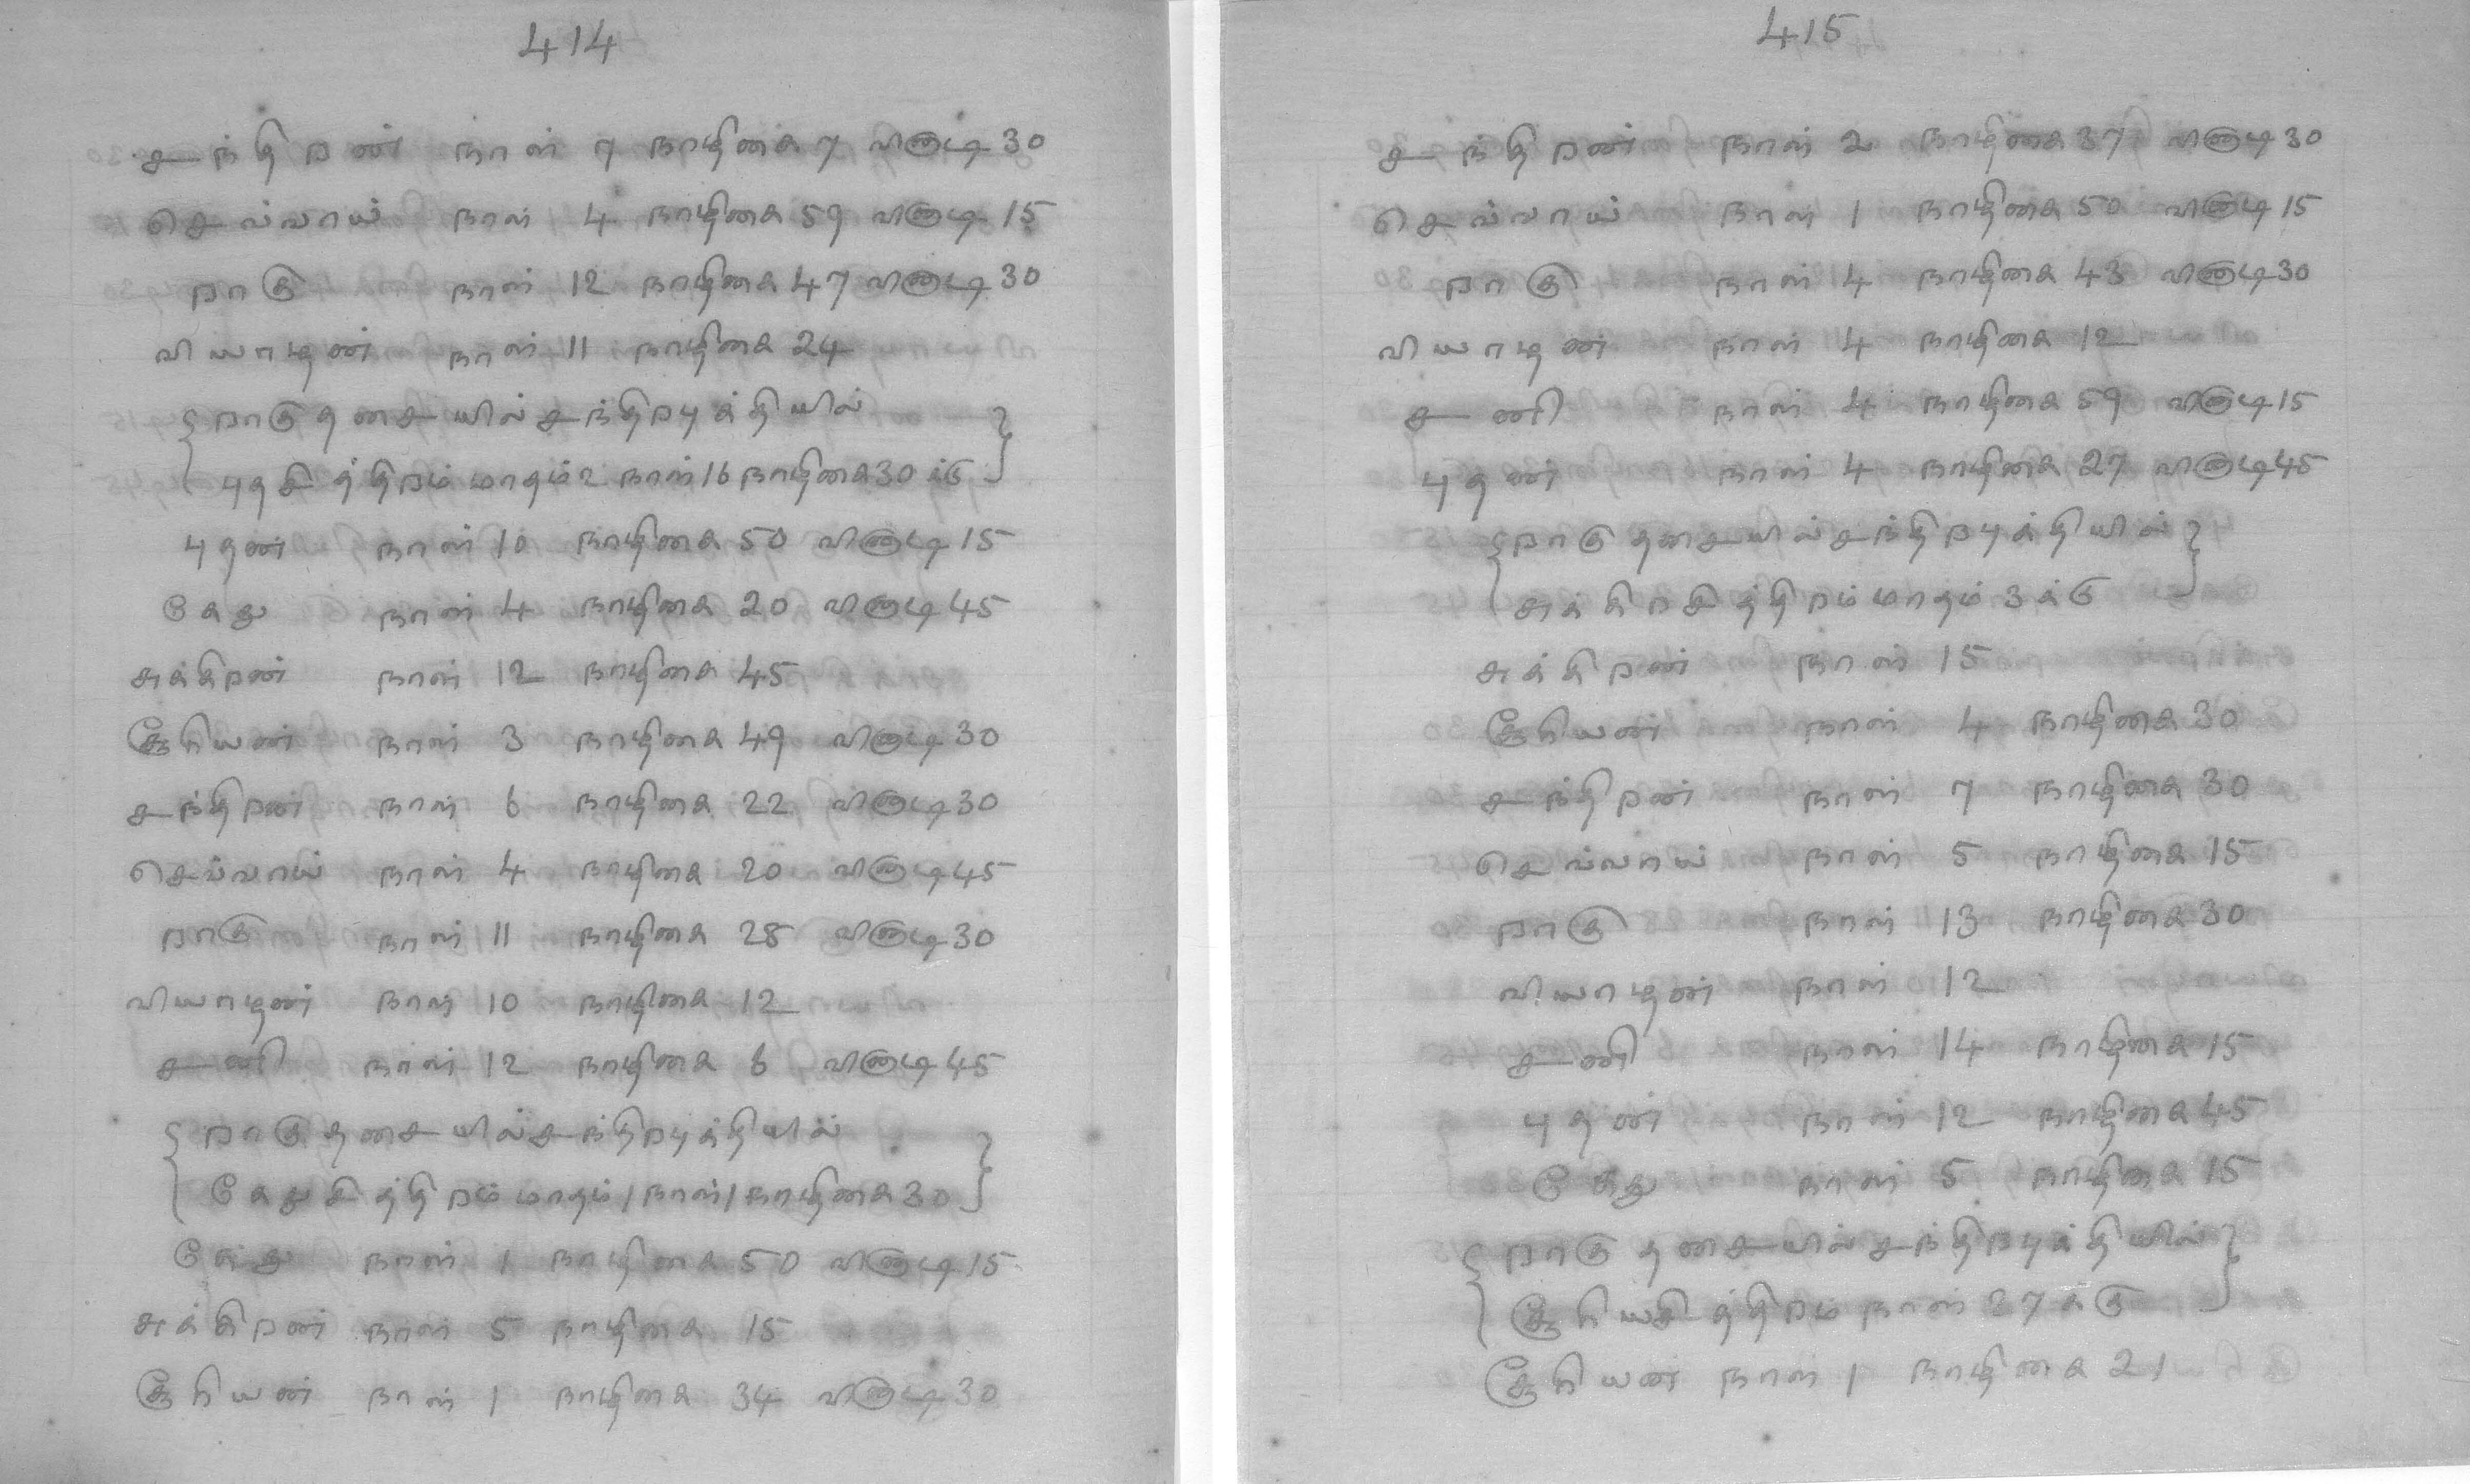 414
சந்திறன் நாள் 7 நாழிகை 7 விருடி 30
செவ்வாய் நாள் 4 நாழிகை 59 விருடி 15
றாகு நாள் 12 நாழிகை 47 விருடி 30
வியாழன் நாள் 11 நாழிகை 24
றாகுதசையில்சந்திறபுக்தியில்
புதசித்திறம் மாதம் 2 நாள் 16 நாழிகை 30 க்கு
புதன் நாள் 10 நாழிகை 50 விருடி 15
கேது நாள் 4 நாழிகை 20 விருடி 45
சுக்கிறன் நாள் 12 நாழிகை 45
சூரியன் நாள் 3 நாழிகை 49 விருடி 30
சந்திறன் நாள் 6 நாழிகை 22 விருடி 30
செவ்வாய் நாள் 4 நாழிகை 20 விருடி 45
றாகு நாள் 11 நாழிகை 28 விருடி 30
வியாழன் நாள் 10 நாழிகை 12
சனி நாள் 12 நாழிகை 6 விருடி 45
றாகுதசையில்சந்திறபுக்தியில்
கேதுசித்திறம் மாதம் 1 நாள் 1 நாழிகை 30
கேது நாள் 1 நாழிகை 50 விருடி 15
சுக்கிறன் நாள் 5 நாழிகை 15
சூரியன் நாள் 1 நாழிகை 34 விருடி 30
415
சந்திறன் நாள் 2 நாழிகை 37 விருடி 30
செவ்வாய் நாள் 1 நாழிகை 50 விருடி 15
றாகு நாள் 4 நாழிகை 43 விருடி 30
வியாழன் நாள் 4 நாழிகை 12
சனி நாள் 4 நாழிகை 59 விருடி 15
புதன் நாள் 4 நாழிகை 27 விருடி 45
றாகுதசையில்சந்திறபுக்தியில்
சுக்கிறசித்திறம் மாதம் 3 க்கு
சுக்கிறன் நாள் 15
சூரியன் நாள் 4 நாழிகை 30
சந்திறன் நாள் 7 நாழிகை 30
செவ்வாய் நாள் 5 நாழிகை 15
றாகு நாள் 13 நாழிகை 30
வியாழன் நாள் 12
சனி நாள் 14 நாழிகை 15
புதன் நாள் 12 நாழிகை 45
கேது நாள் 5 நாழிகை 15
றாகுதசையில்சந்திறபுக்தியில்
சூரியசித்திறம் நாள் 27 க்கு
சூரியன் நாள் 1 நாழிகை 21